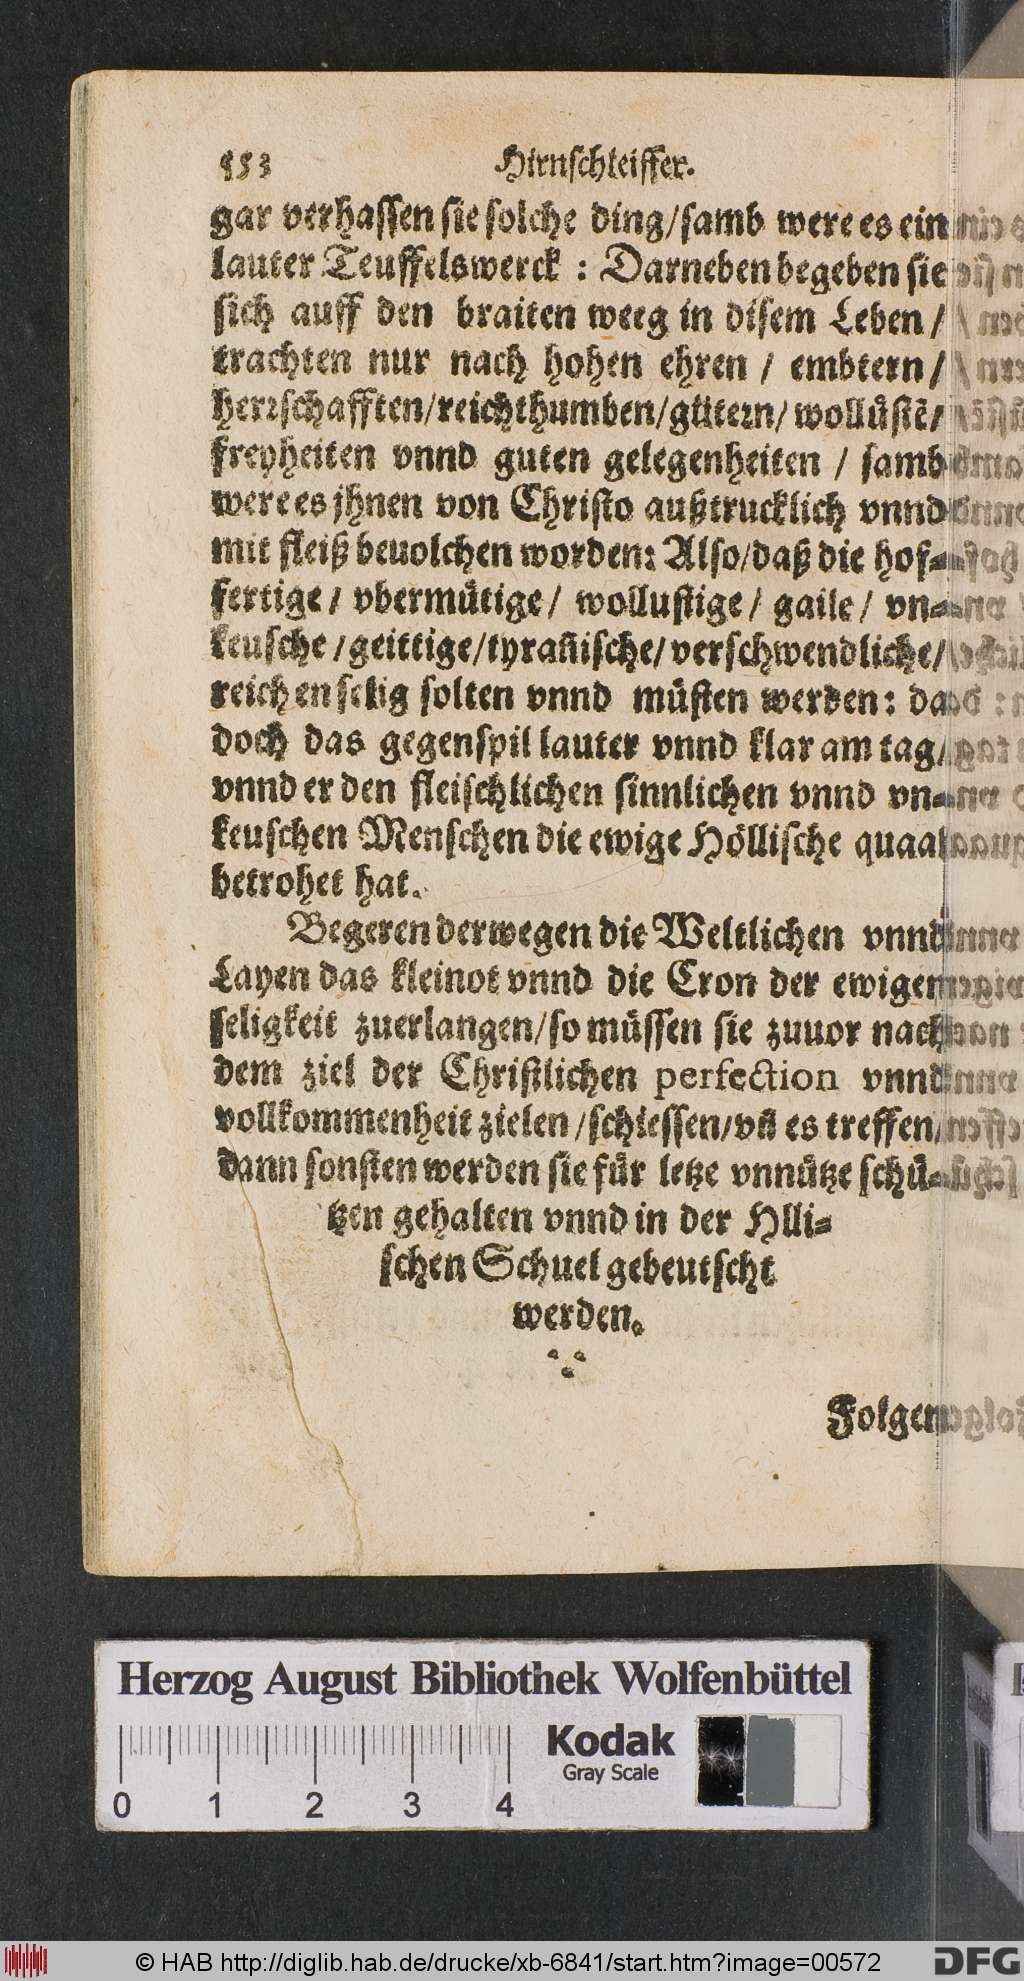 553 Hirnschleiffer.
gar verhassen sie solche ding/samb were es ein
lauter Teuffelswerck : Darneben begeben sie
sich auff den braiten weeg in disem Leben /
trachten nur nach hohen ehren / embtern /
herrschafften/reichthumben/gütern/ wollůstē/
freyheiten vnnd guten gelegenheiten / samb
were es jhnen von Christo außtrucklich vnnd
mit fleiß beuolchen worden: Also/daß die hof-
fertige / vbermůtige / wollustige / gaile / vn-
keusche / geittige/tyrañische/ verschwendliche/
reichen selig solten vnnd můsten werden: da
doch das gegenspil lauter vnnd klar am tag/
vnnd er den fleischlichen sinnlichen vnnd vn-
keuschen Menschen die ewige Höllische quaal
betrohet hat.
Begeren derwegen die Weltlichen vnnd
Layen das kleinot vnnd die Cron der ewigen
seligkeit zuerlangen/so můssen sie zuuor nach
dem ziel der Christlichen perfection vnnd
vollkommenheit zielen /schiessen/vñ es treffen/
dann sonsten werden sie fůr letze vnnůtze schů-
tzen gehalten vnnd in der Hlli-
schen Schuel gebeutscht
werden.
Folgen
Herzog August Bibliothek Wolfenbüttel
Kodak
Gray Scale
0 1 2 3 4
© HAB http://diglib.hab.de/drucke/xb-6841/start.htm?image=00572
DFG